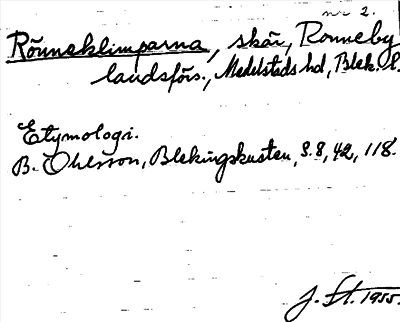 nr 2.
Rönneklimparna, skär, Ronneby
landsförs., Medelstads hd, Blek. l.
Etymologi.
B. Ohlsson, Blekingskusten, S. 8, 42, 118.
J. St. 1955.